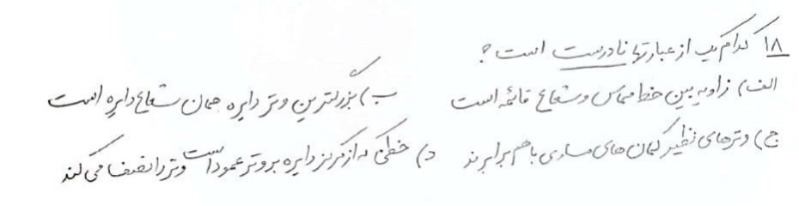 ۱۸ کدام یک از عبارتها نادرست است ؟
الف) زاویه بین خط مماس و شعاع قائمه است ب) بزرگترین وتر دایره همان شعاع دایره است
ج) وترهای نظیر کمان های مساوی با هم برابرند د) خطی که از مرکز دایره بر وتر عمود است وتر را نصف می کند